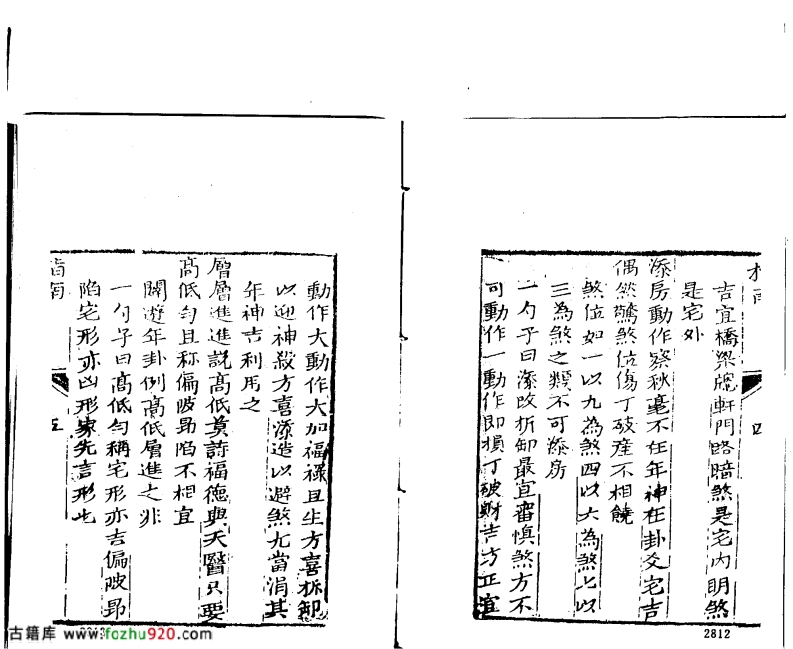 吉宜橋梁廳軒門路暗煞是宅內明煞
是宅外
添房動作察秋毫不在年神在卦爻宅吉
偶然驚煞位傷丁破產不相饒
煞位如一以九為煞四以六為煞七以
三為煞之類不可添房
一勺子曰添改拆卸最宜審慎煞方不
可動作一動作即損丁破財吉方正宜
四
2812
動作大動作大加福祿且生方喜拆卸
以迎神殺方喜添造以避煞尤當涓其
年神吉利用之
層層進進說高低莫訝福德與天醫只要
高低勻且称偏陂昴陷不相宜
闢遊年卦例高低層進之非
一勺子曰高低勻稱宅形亦吉偏陂昴
陷宅形亦凶形家先言形也
指南
五
古籍库 www.fozhu920.com